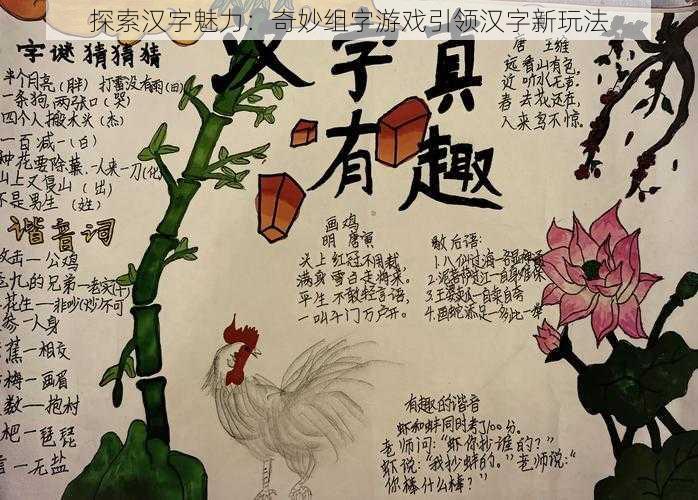 探索汉字魅力：奇妙组字游戏引领汉字新玩法
汉字真
有趣
字谜猜猜猜
半个月亮(胖) 打雷没有雨(田)
一条狗，两张口(哭)
四个人搬木头(杰)
一百减一(白)
种花要除草，一人来一刀(化)
山上又复山(出)
不是男生(姓)
谐音词
攻击—公鸡
老九的兄弟—老实(十)
花生—非吵(炒)不可
参—人身
蕉—相交
梅—画眉
数—抱村
杷—琵琶
言—无盐
唐 王维
远看山有色，
近听水无声。
春去花还在，
人来鸟不惊。
画鸡
明 唐寅
头上红冠不用裁，
满身雪白走将来。
平生不敢轻言语，
一叫千门万户开。
歇后语：
1.八仙过海—各显神通
2.泥菩萨过江—自身难保
3.王婆卖瓜—自卖自夸
4.画蛇添足—多此一举
有趣的谐音
虾和蚌同时考了100分。
老师问：“虾你抄谁的？”
虾说：“我抄蚌的。”老师说：“
你棒什么棒？”